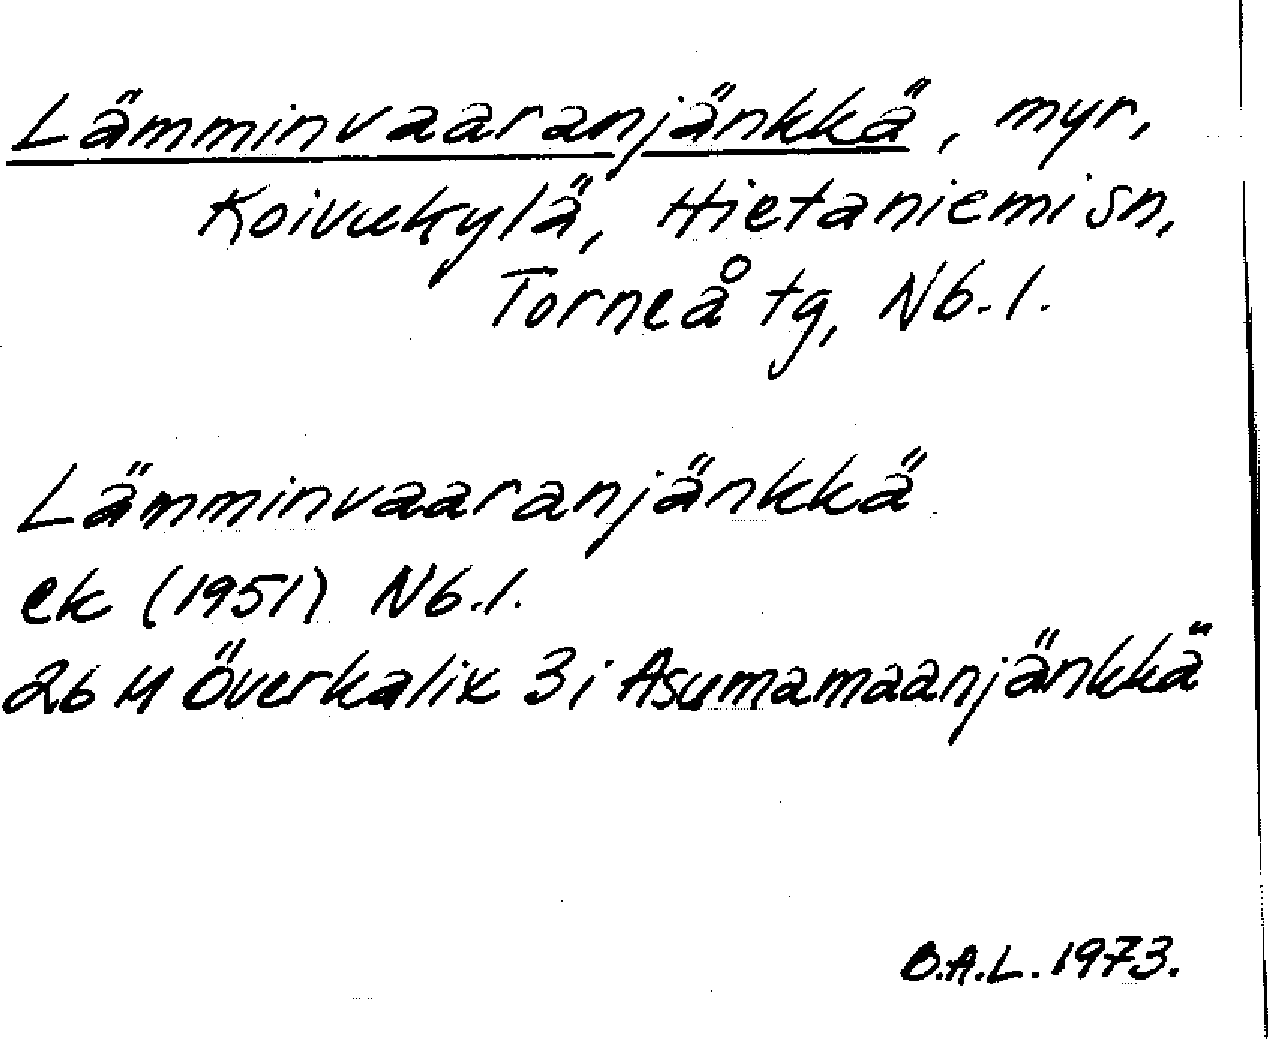 Lämminvaaranjänkkä, myr,
Koivukylä, Hietaniemi sn,
Torneå tg, Nb. l.
Lämminvaaranjänkkä
ek (1951) Nb. l.
26 M Överkalix 3 i Asumamaanjänkkä
B.A.L. 1973.